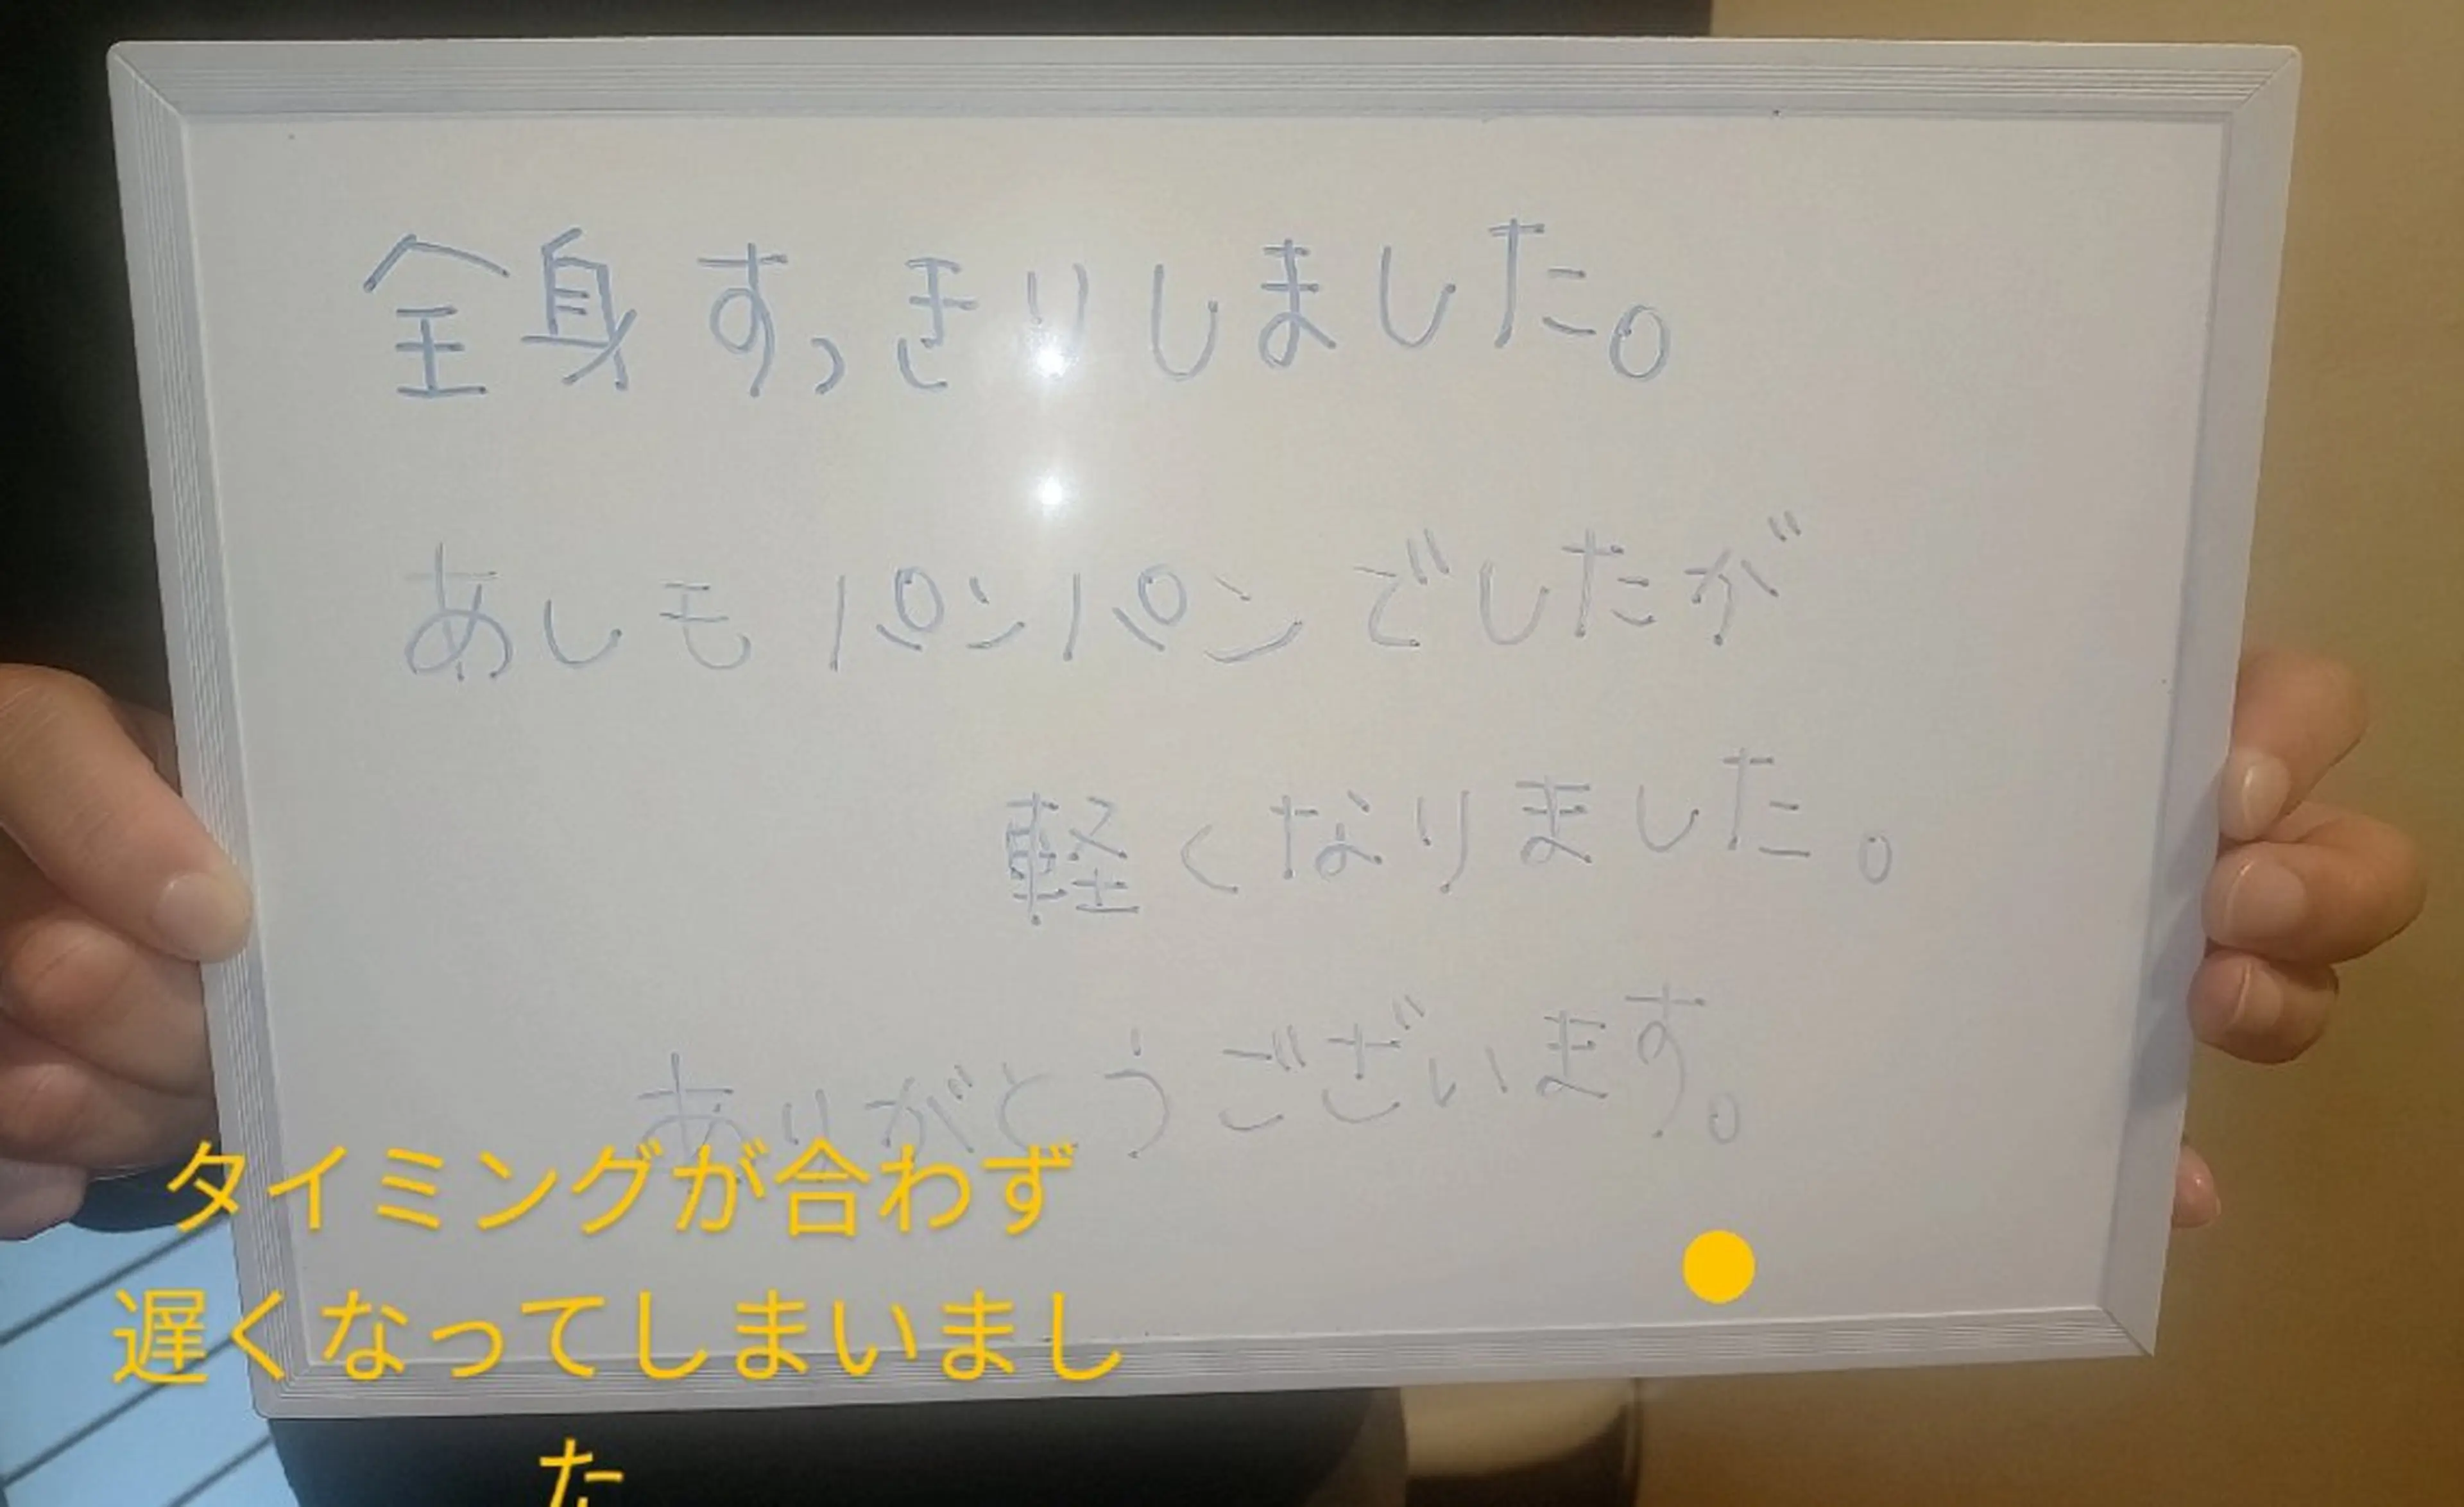 全身すっきりしました。
あしもパンパンでしたが
軽くなりました。
ありがとうございます。
タイミングが合わず
遅くなってしまいまし
た